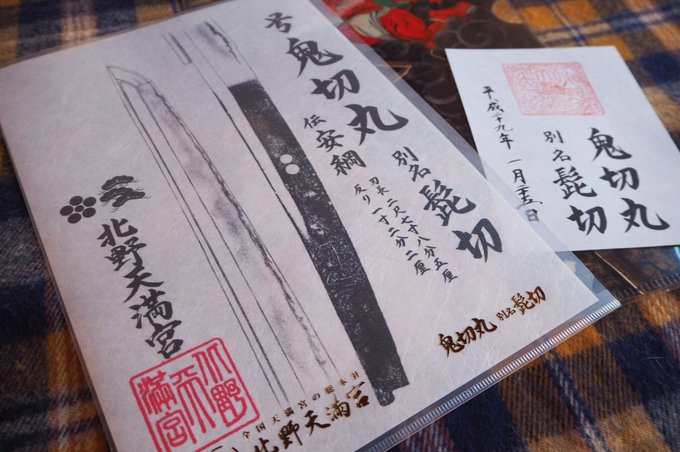 号 鬼切丸 別名 髭切
伝 安綱
刃長 二尺七寸八分五厘
反り 一寸二分二厘
北野天満宮
北野天満宮
鬼切丸 別名 髭切
全国天満宮の総本社
北野天満宮
鬼切丸
別名 髭切
平成二十九年 一月二十五日